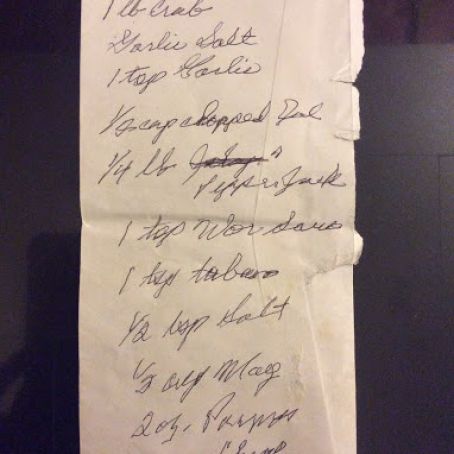 1 lb Crab
Garlic Salt
1 tsp Garlic
1/2 cup chopped
1/4 lb
Pepper Jack
1 tsp Wor Saus
1 tsp tabasco
1/2 tsp Salt
1/2 cup May
2 oz.